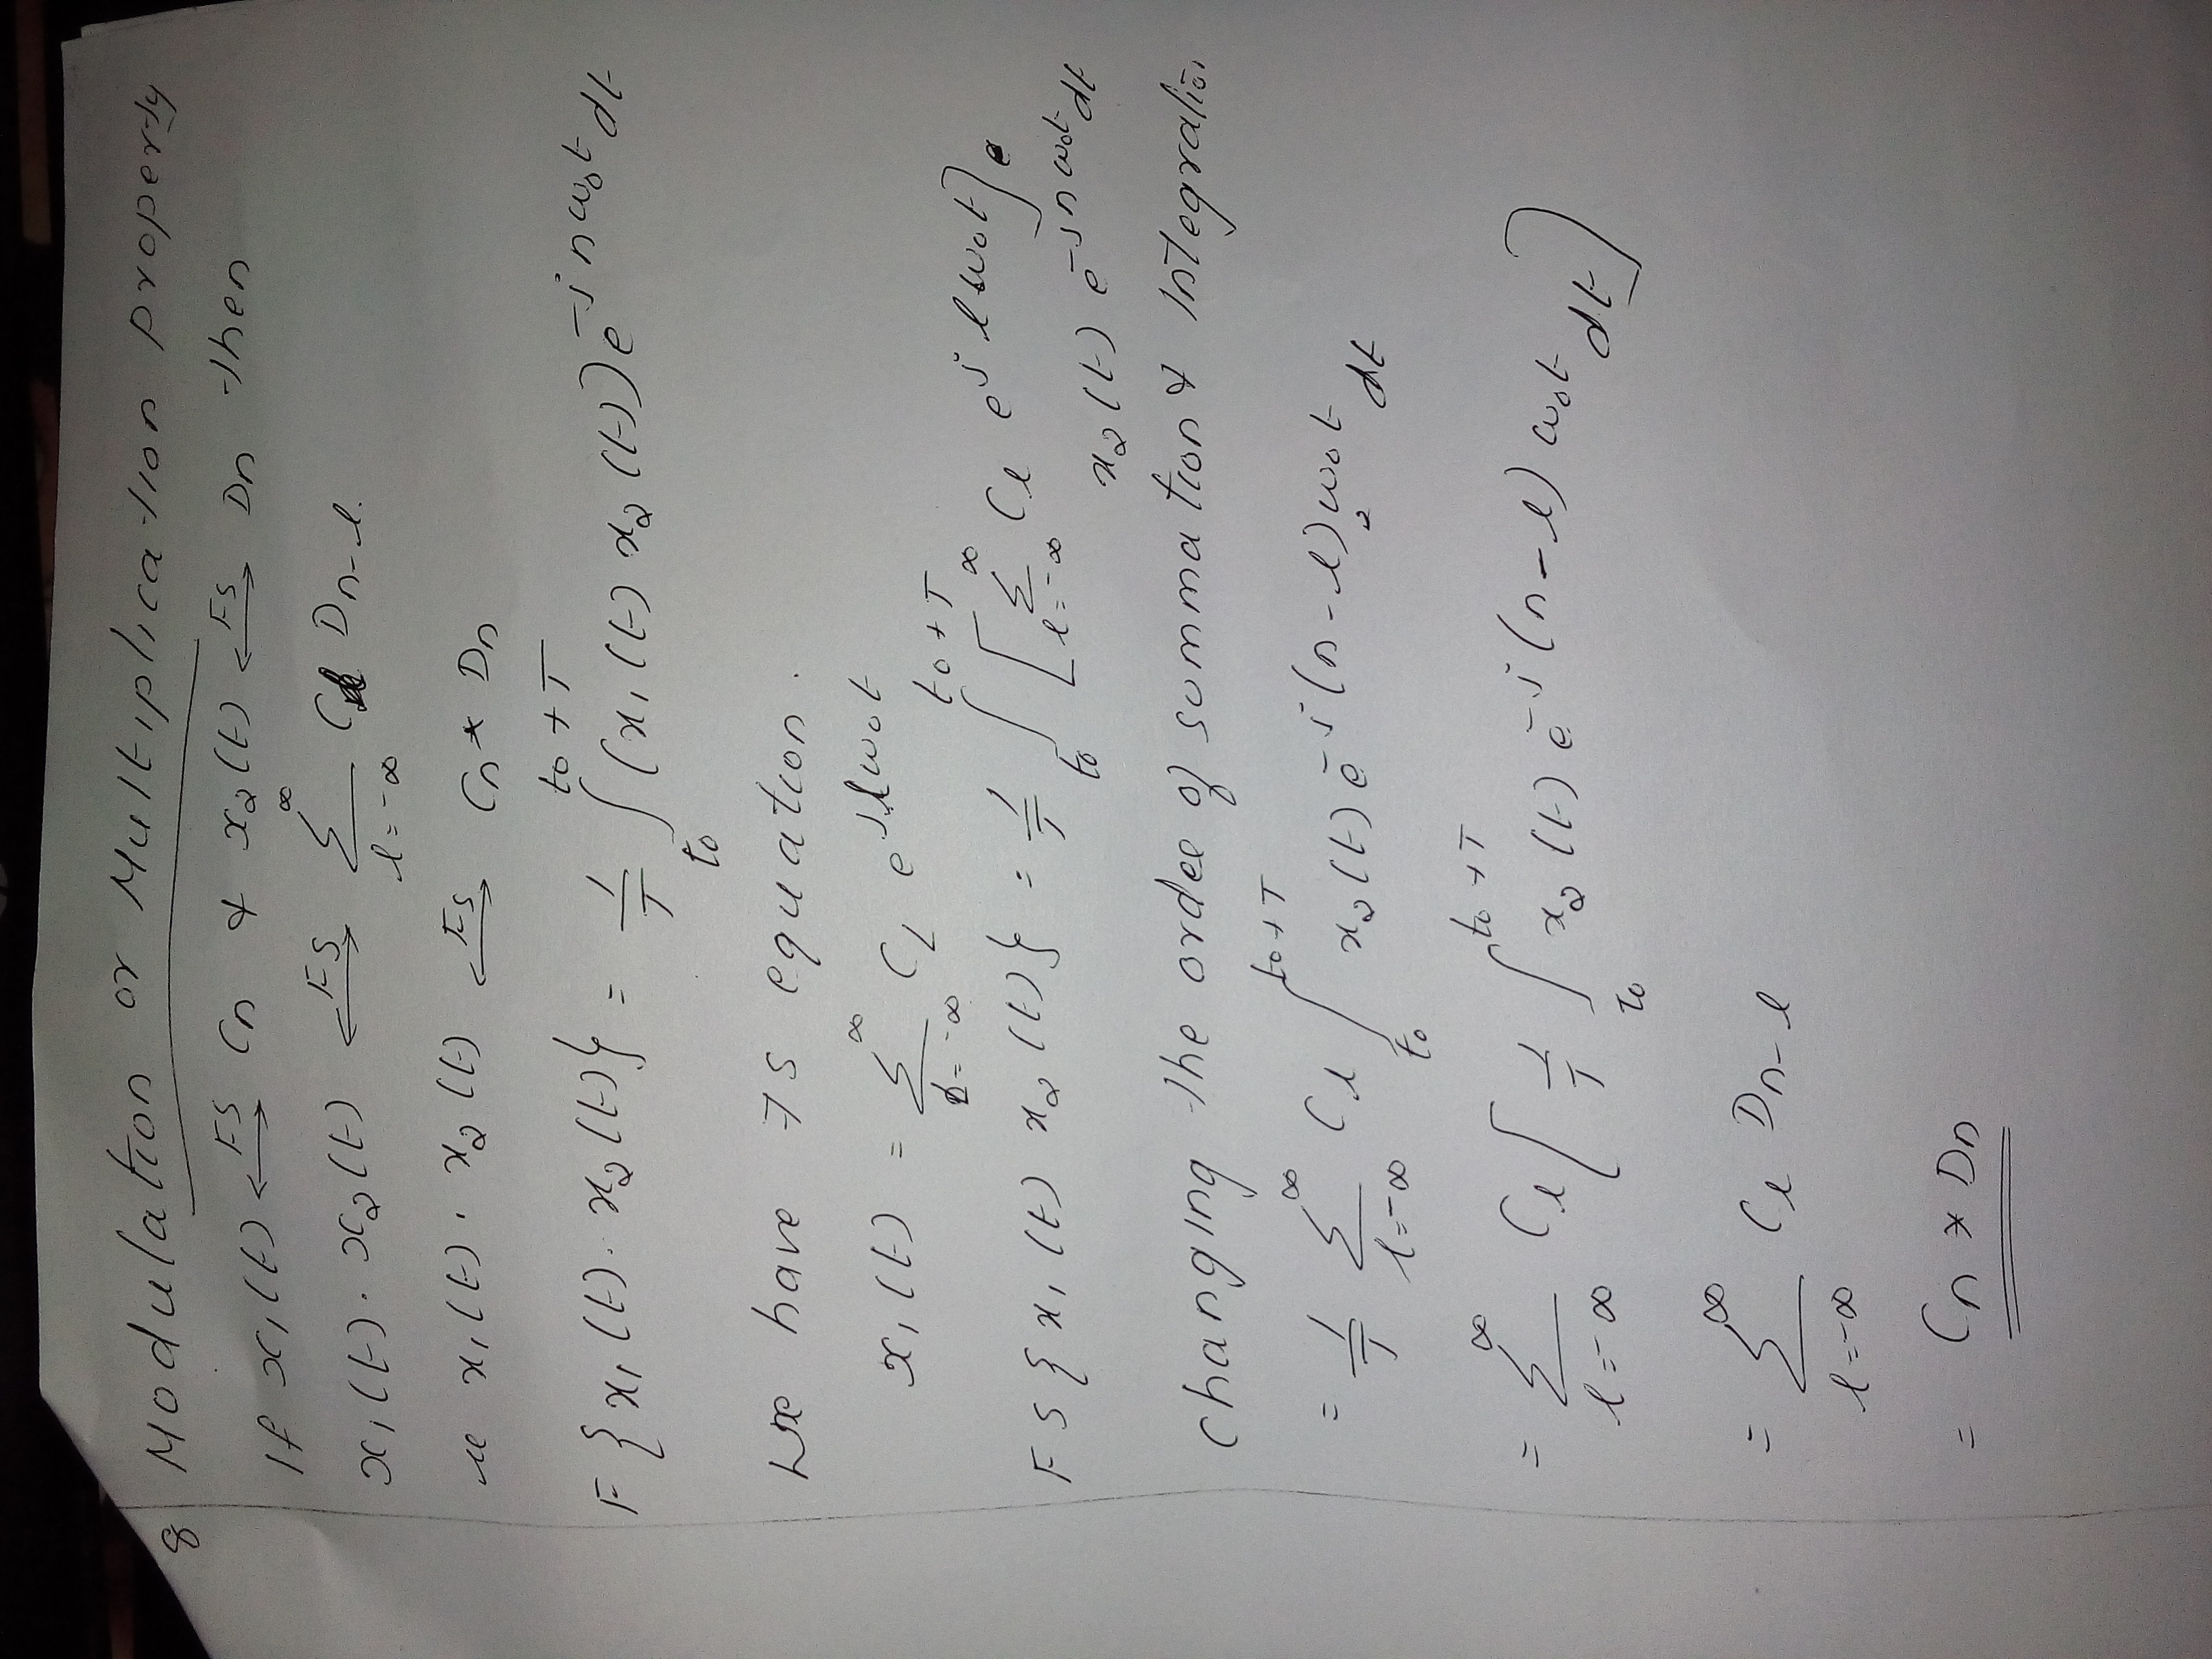 8 Modulation or Multiplication property
If x₁(t) ⟷FS Cn & x₂(t) ⟷FS Dn then
x₁(t). x₂(t) ⟷FS ∑_{l=-∞}^{∞} Cl Dn-l.
ie x₁(t). x₂(t) ⟷FS Cn * Dn
F{x₁(t). x₂(t)} = 1/T ∫_{t₀}^{t₀+T} (x₁(t) x₂(t)) e^{-jnω₀t} dt
We have FS equation.
x₁(t) = ∑_{l=-∞}^{∞} Cl e^{jlω₀t}
FS{x₁(t) x₂(t)} = 1/T ∫_{t₀}^{t₀+T} [∑_{l=-∞}^{∞} Cl e^{jlω₀t}]
x₂(t) e^{-jnω₀t} dt
Changing the order of summation & integration,
= 1/T ∑_{l=-∞}^{∞} Cl ∫_{t₀}^{t₀+T} x₂(t) e^{-j(n-l)ω₀t} dt
= ∑_{l=-∞}^{∞} Cl [1/T ∫_{t₀}^{t₀+T} x₂(t) e^{-j(n-l)ω₀t} dt]
= ∑_{l=-∞}^{∞} Cl Dn-l
= Cn * Dn